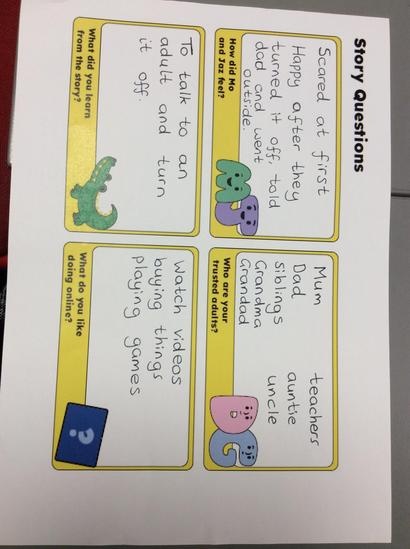 Story Questions
Scared at first
Happy after they
turned it off, told
dad and went
outside.
How did Mo
and Jaz feel?
Mum teachers
Dad auntie
Siblings uncle
Grandma
Grandad
Who are your
trusted adults?
To talk to an
adult and turn
it off.
What did you learn
from the story?
Watch videos
buying things
playing games
What do you like
doing online?
?